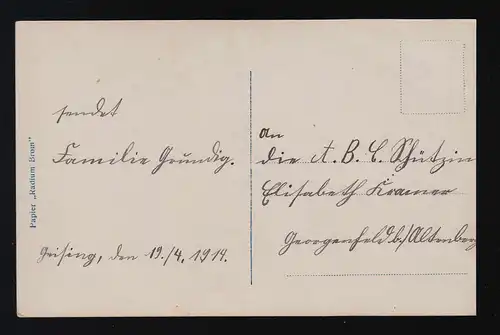 sendet
Familie Grundig.
Geising, den 19./4. 1914.
An
die A. B. C. Schützin
Elisabeth Kramer
Georgenfeld b/Altenberg
Papier „Radium Brom"